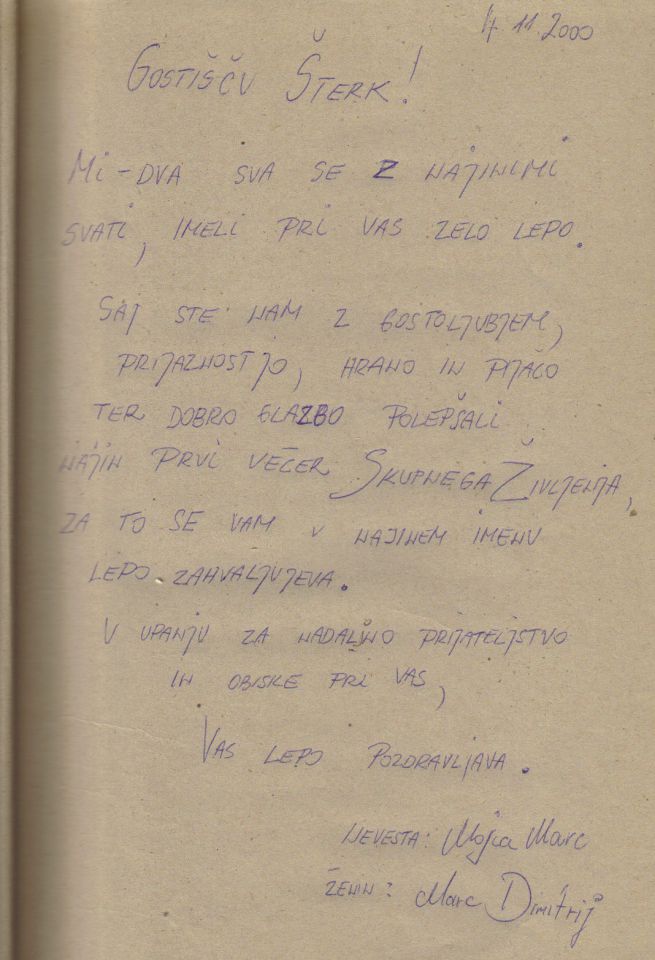 4. 11. 2000
GOSTIŠČU ŠTERK!
MI-DVA SVA SE Z NAJINIMI
SVATI, IMELI PRI VAS ZELO LEPO.
SAJ STE NAM Z GOSTOLJUBJEM,
PRIJAZNOSTJO, HRANO IN PIJAČO
TER DOBRO GLAZBO POLEPŠALI
NAJIN PRVI VEČER SKUPNEGA ŽIVLJENJA,
ZA TO SE VAM V NAJINEM IMENU
LEPO ZAHVALJUJEVA.
V UPANJU ZA NADALNO PRIJATELJSTVO
IN OBISKE PRI VAS,
VAS LEPO POZDRAVLJAVA.
NEVESTA: Mojca Marc
ŽENIN: Marc Dimitrij